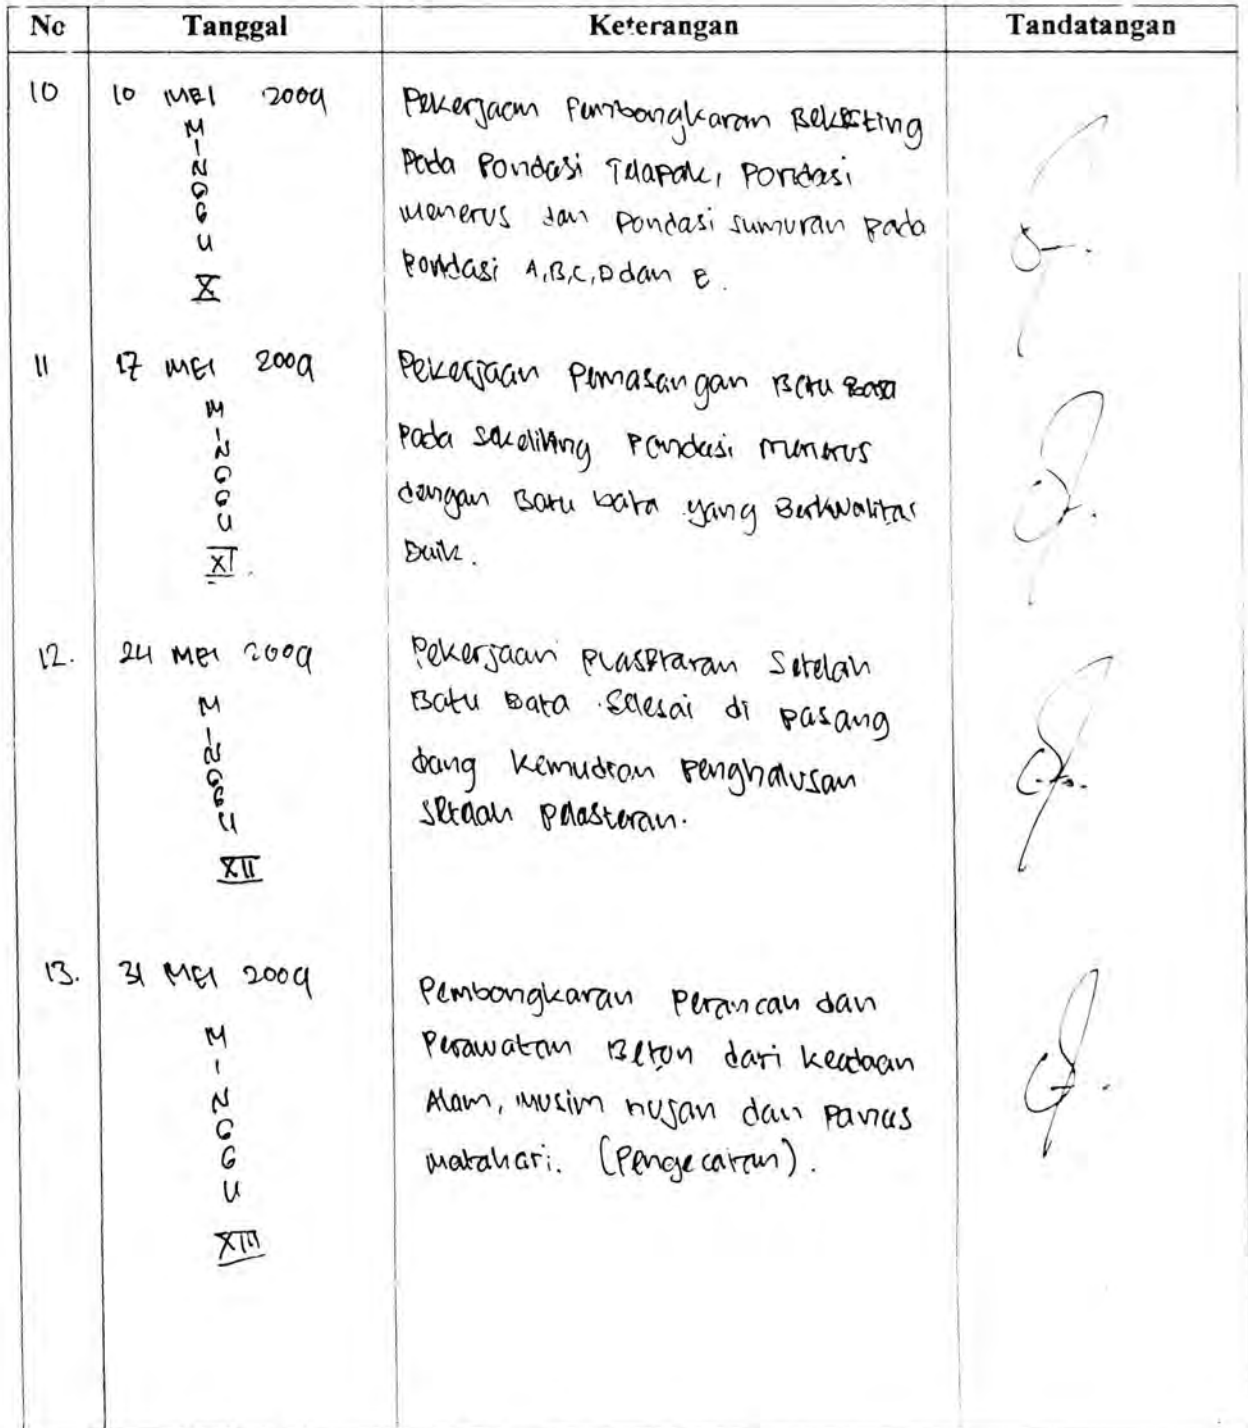 No Tanggal Keterangan Tandatangan
10 10 MEI 2009 Pekerjaan Pembongkaran Bekisting
pada Pondasi Telapak, Pondasi
menerus dan Pondasi sumuran pada
Pondasi A,B,C,D dan E.
MINGGU
X
11 17 MEI 2009 Pekerjaan Pemasangan Batu Bata
pada sekeliling Pondasi menerus
dengan Batu bata yang Berkwalitas
Baik.
MINGGU
XI.
12. 24 MEI 2009 Pekerjaan Plasteran Setelah
Batu Bata Selesai di pasang
dang kemudian Penghalusan
setelah Pelasteran.
MINGGU
XII
13. 31 MEI 2009 Pembongkaran Perancah dan
Perawatan Beton dari keadaan
Alam, musim hujan dan Panas
matahari. (Pengecatan).
MINGGU
XIII